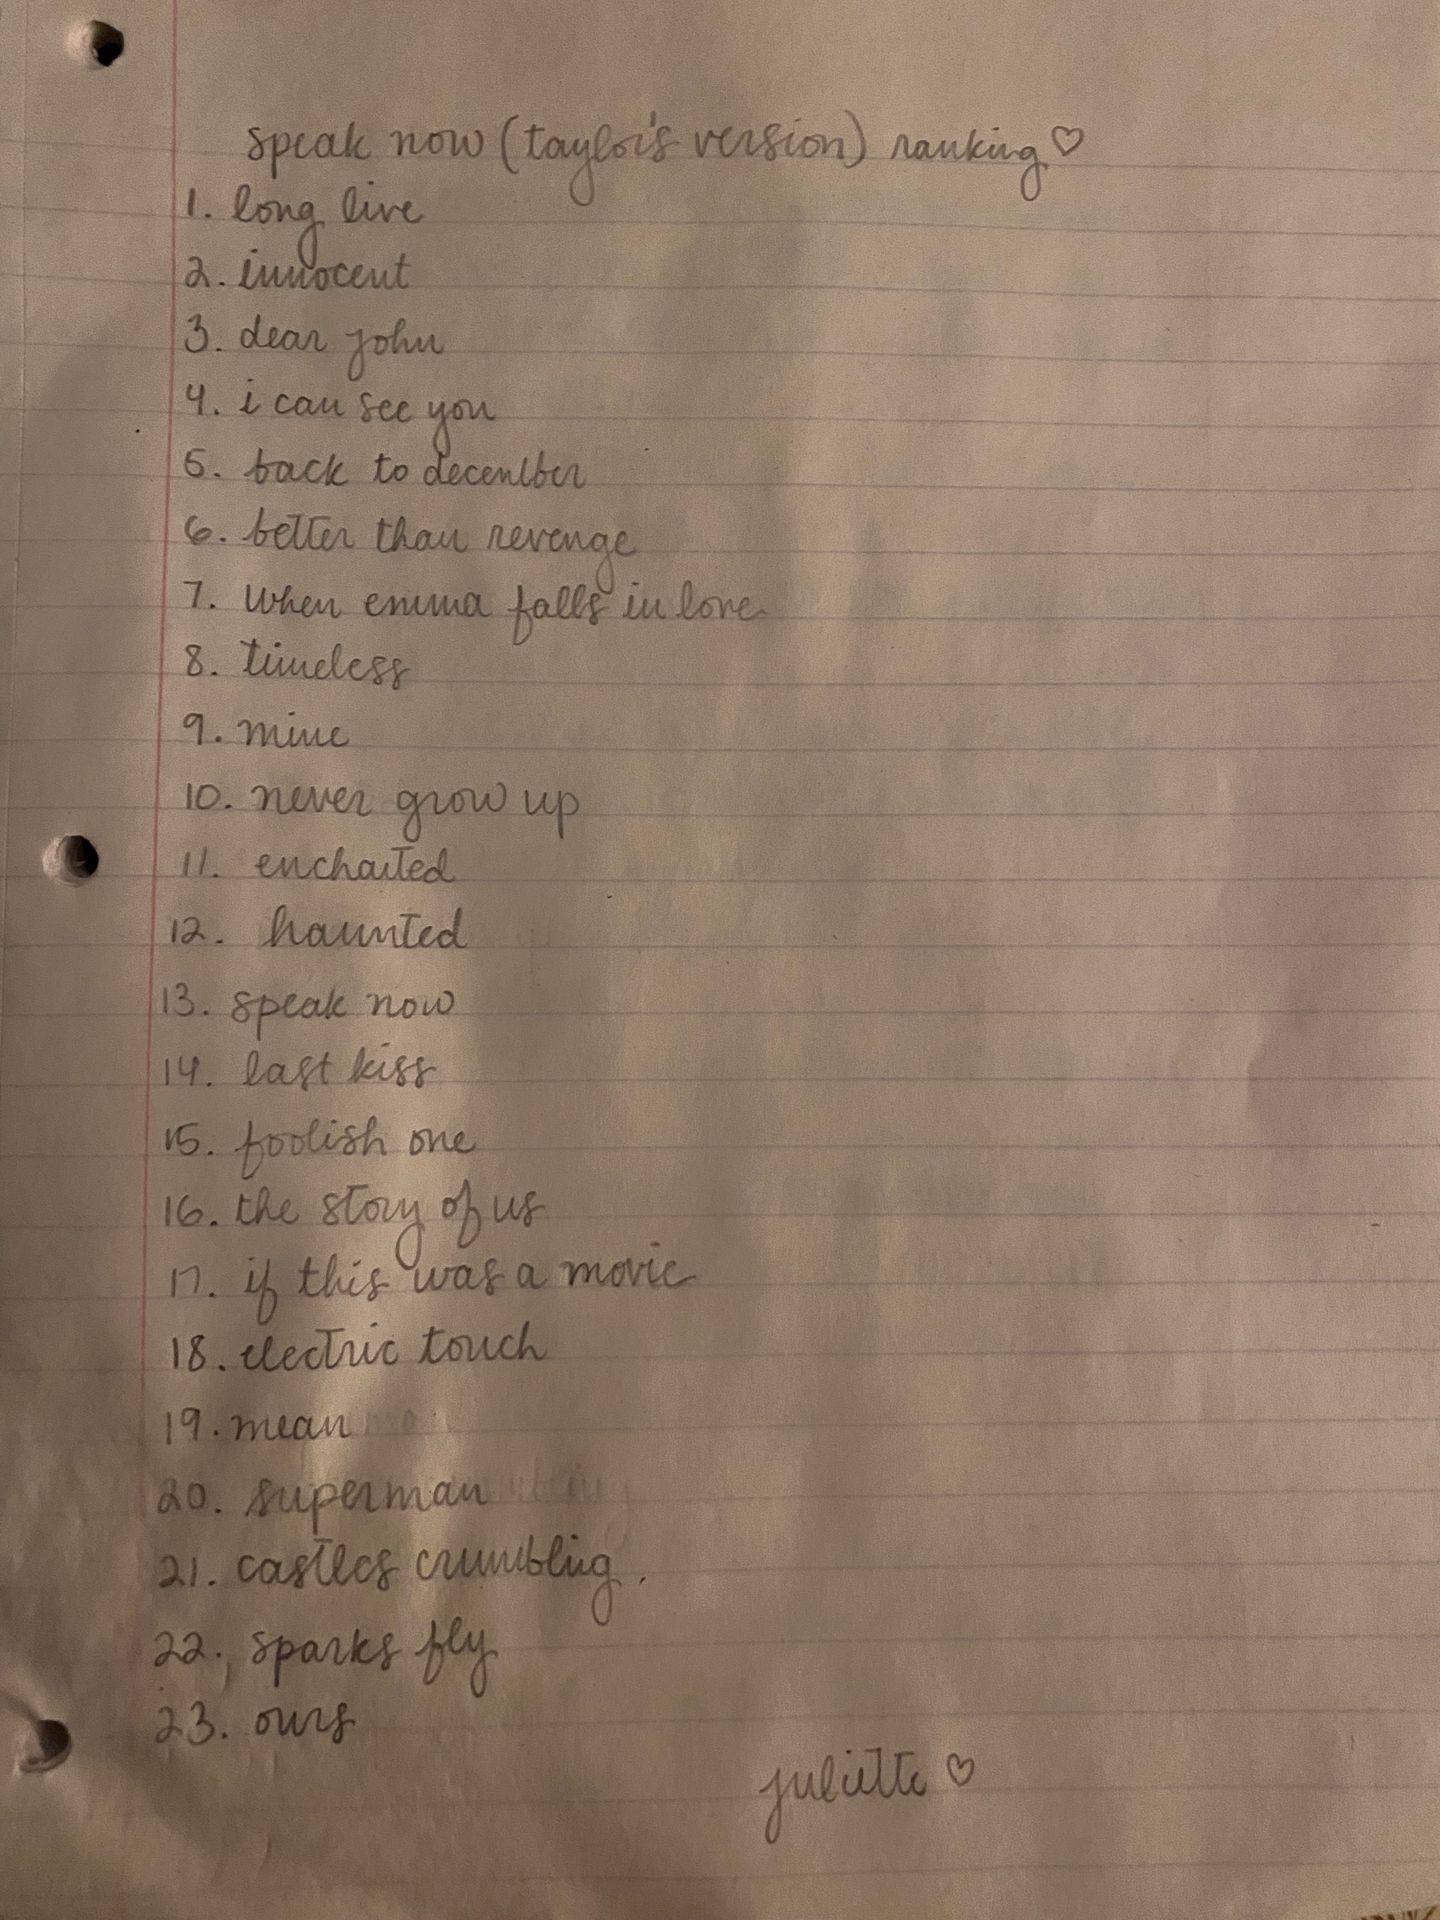 speak now (taylor's version) ranking♡
1. long live
2. innocent
3. dear john
4. i can see you
5. back to december
6. better than revenge
7. when emma falls in love
8. timeless
9. mine
10. never grow up
11. enchanted
12. haunted
13. speak now
14. last kiss
15. foolish one
16. the story of us
17. if this was a movie
18. electric touch
19. mean
20. superman
21. castles crumbling.
22. sparks fly
23. ours
juliette ♡